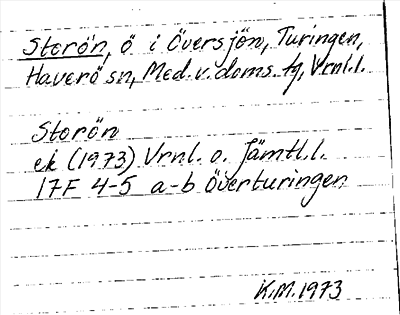 Storön, ö i Översjön, Turingen,
Haverö sn, Med. v. doms. tg, Vrnl.l.
Storön
ek (1973) Vrnl. o. Jämtl.l.
17F 4-5 a-b Överturingen
K.M. 1973